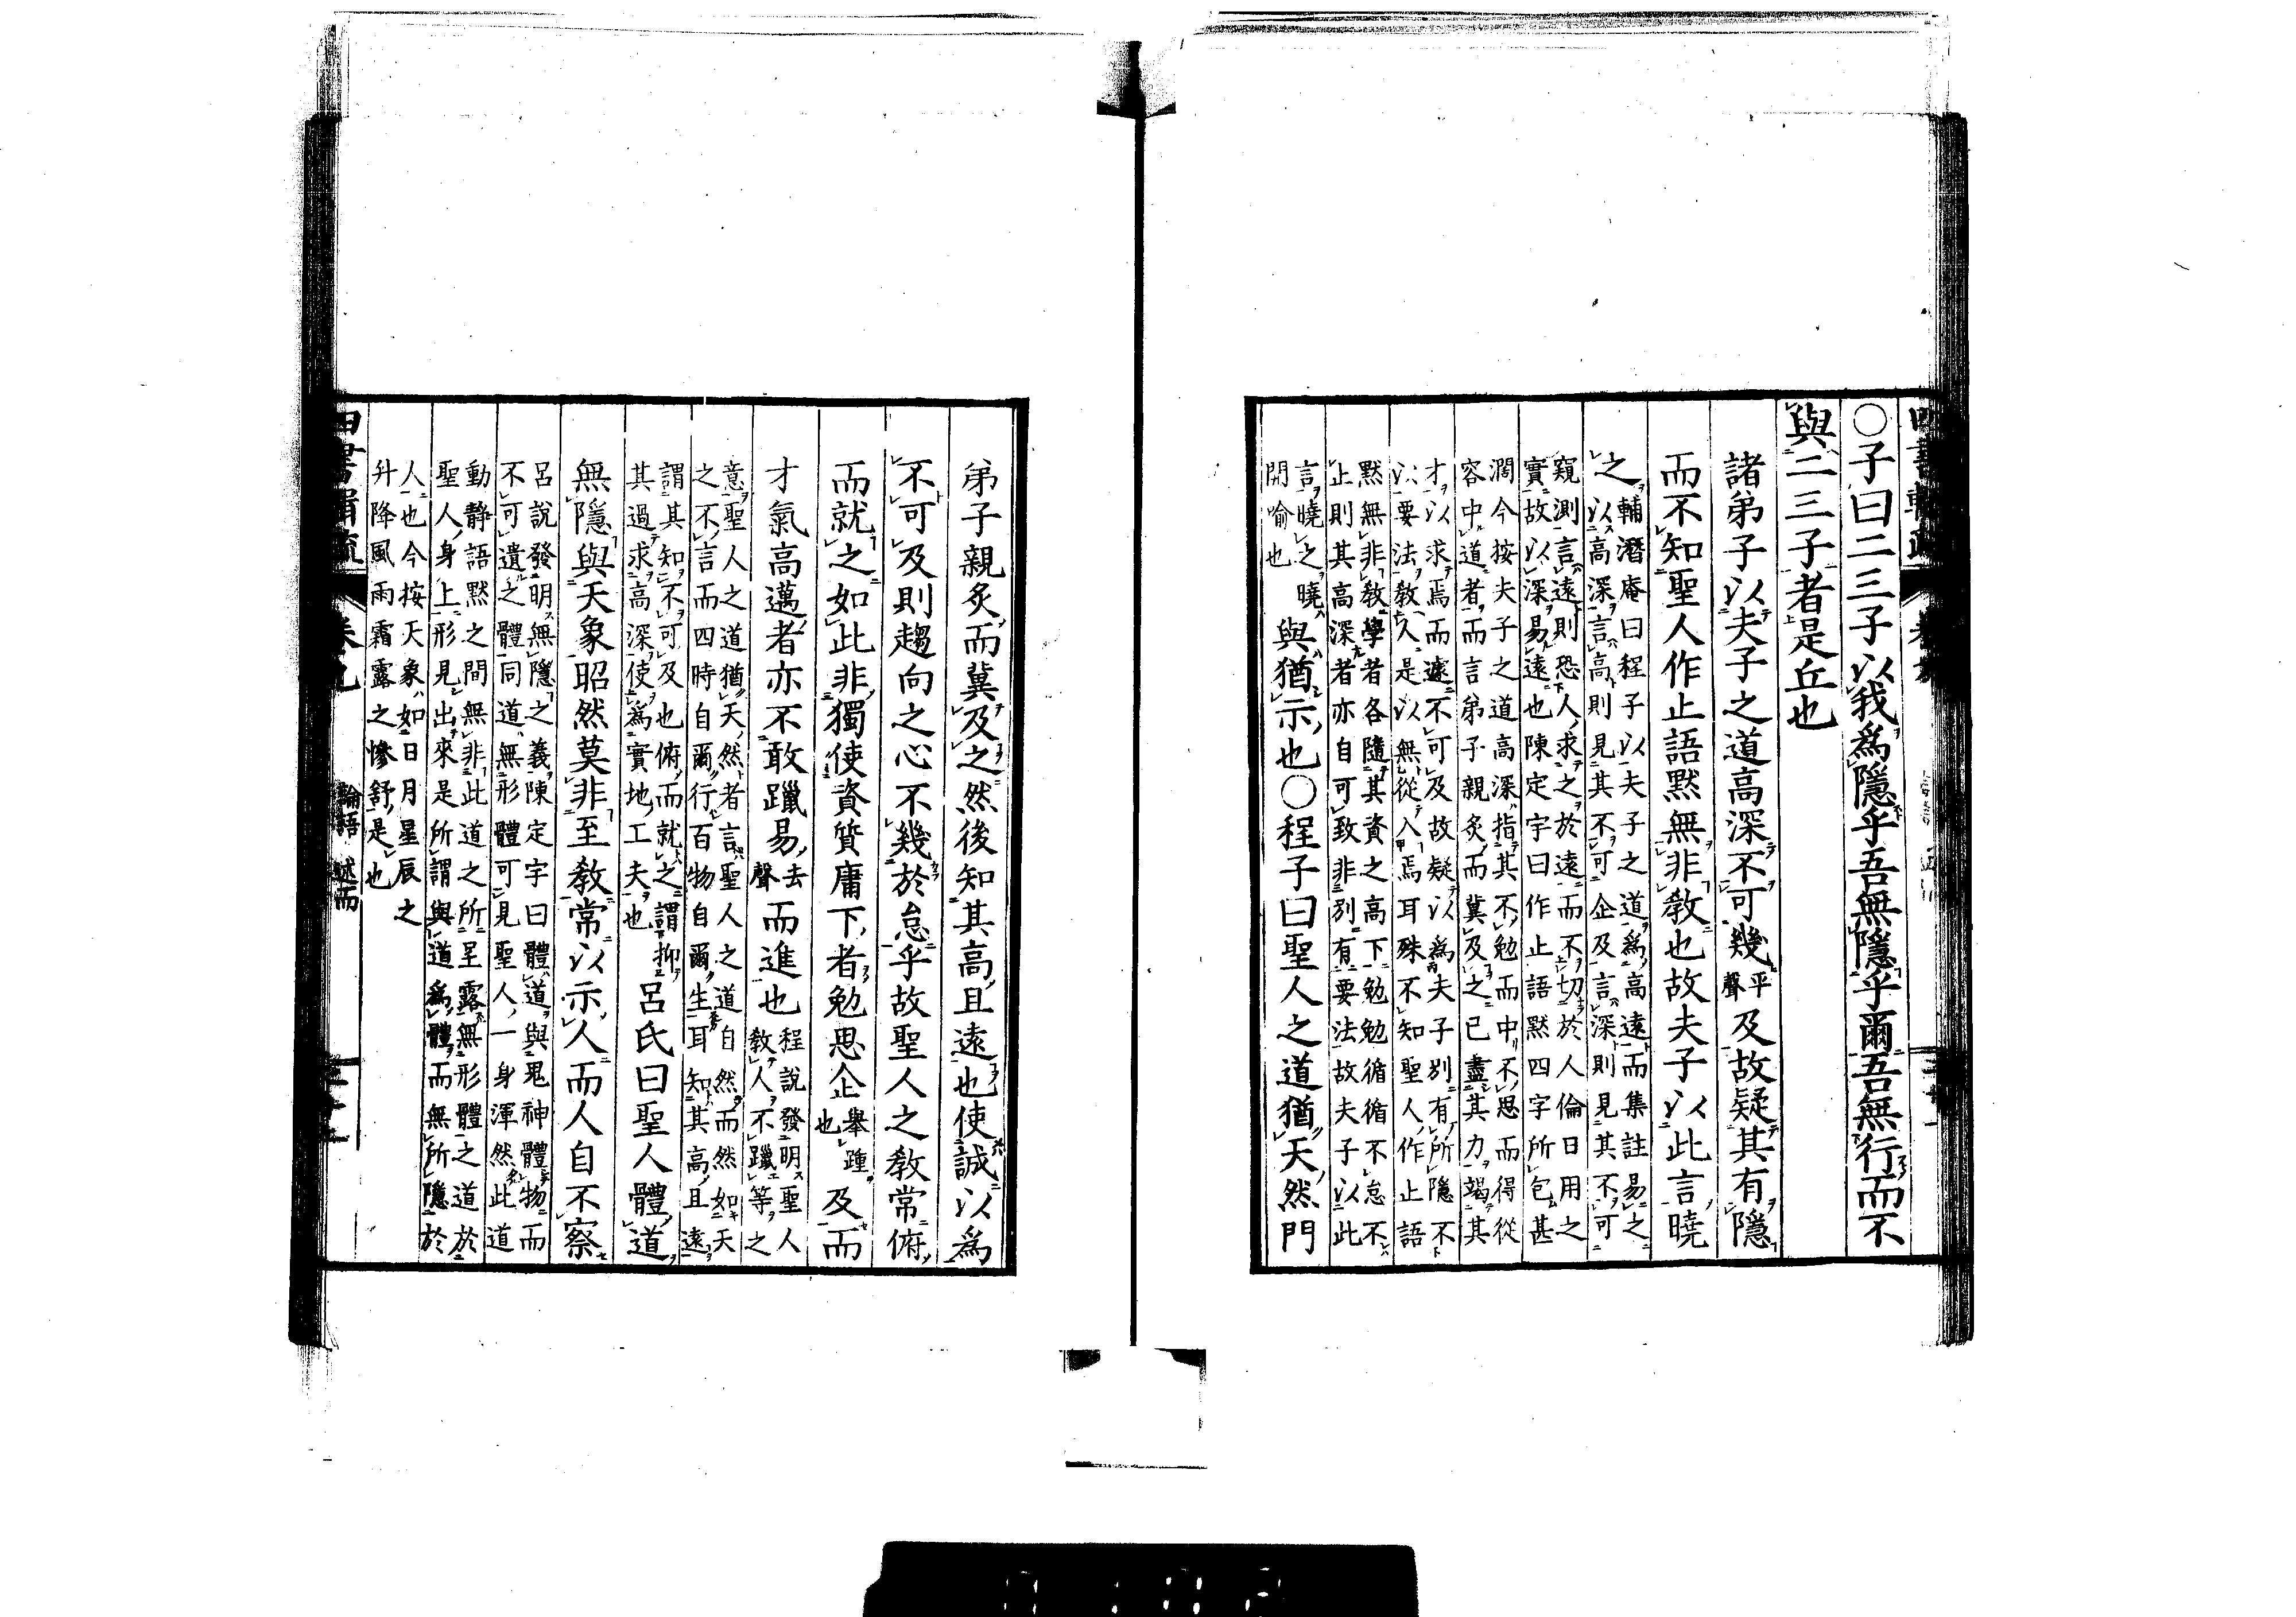 ○子曰二三子以我爲隱乎吾無隱乎爾吾無行而不
與二三子者是丘也
諸弟子以夫子之道高深不可幾平聲及故疑其有隱
而不知聖人作止語默無非教也故夫子以此言曉
之輔潛庵曰程子以夫子之道爲高遠而集註易之
以高深言高則見其不可企及言深則見其不可
窺測言遠則恐人求之於遠而不切於人倫日用之
實故以深易遠也陳定宇曰作止語默四字所包甚
濶今按夫子之道高深指其不勉而中不思而得從
容中道者而言弟子親炙而冀及之已盡其力竭其
才以求焉而遽不可及故疑以爲夫子別有所隱不
以要法教人是以無從入焉耳殊不知聖人作止語
默無非教學者各隨其資之高下勉勉循循不怠不
止則其高深者亦自可致非別有要法故夫子以此
言曉之曉
開喻也
與猶示也○程子曰聖人之道猶天然門
弟子親炙而冀及之然後知其高且遠也使誠以爲
不可及則趨向之心不幾於怠乎故聖人之教常俯
而就之如此非獨使資質庸下者勉思企舉踵也及而
才氣高邁者亦不敢躐易去聲而進也程說發明聖人
教人不躐等之
意聖人之道猶天然者言聖人之道自然而然如天
之不言而四時自爾行百物自爾生耳知其高且遠
謂其知不可及也俯而就之謂抑
其過求高深使爲實地工夫也
呂氏曰聖人體道
無隱與天象昭然莫非至教常以示人而人自不察
呂說發明無隱之義陳定宇曰體道與鬼神體物而
不可遺之體同道無形體可見聖人一身渾然此道
動靜語默之間無非此道之所呈露無形體之道於
聖人身上形見出來是所謂與道爲體而無所隱於
人也今按天象如日月星辰之
升降風雨霜露之慘舒是也
四書輯疏
論語 述而